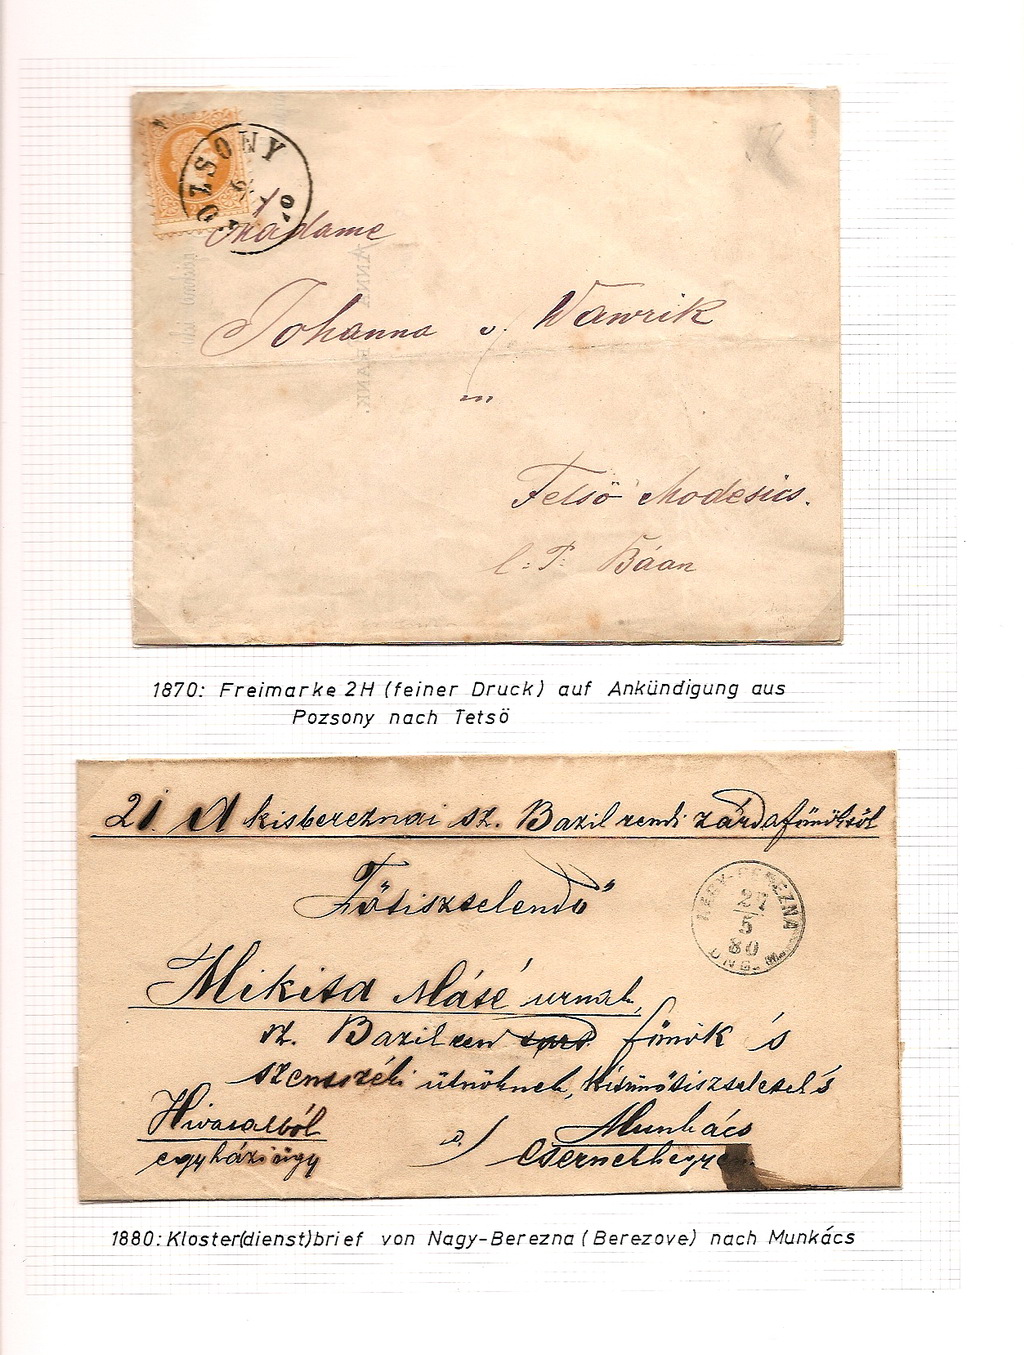 POZSONY
9/1
70
Madame
Johanna v. Wawrik
in
Felsö Modesics.
l: P: Báan
1870: Freimarke 2H (feiner Druck) auf Ankündigung aus
Pozsony nach Tetsö
21. A kisbereznai sz. Bazil rendi zárdafőnöktöl
Főtisztelendő
NAGY-BEREZNA
27
5
80
UNG. M.
Mikita Máté urnak,
sz. Bazil ren főnök s
szentszéki ülnöknek, Kitünőtisztelettel s
Hivatalból
Munkács
egyházi ügy
Csernekhegyen
1880: Kloster(dienst)brief von Nagy-Berezna (Berezove) nach Munkács